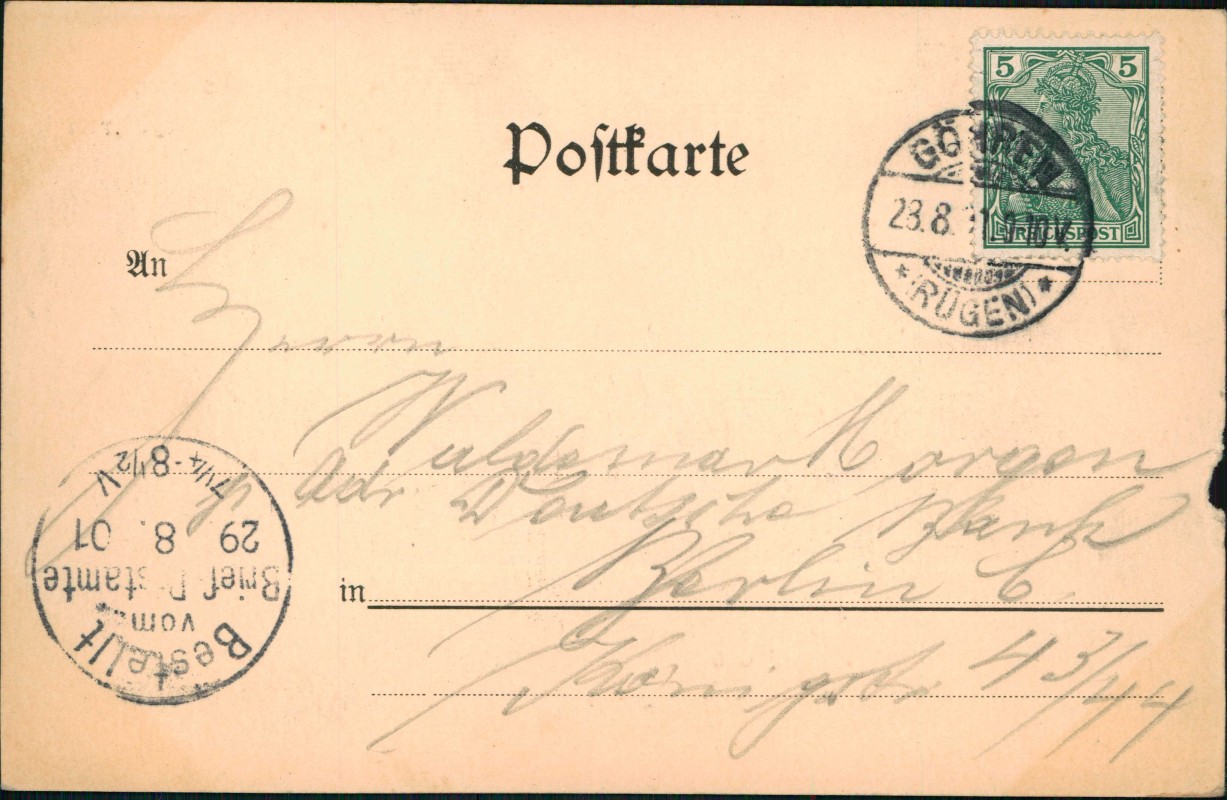 Postkarte
5 5
REICHSPOST
GÖHREN
23.8. 9-10V.
* (RÜGEN) *
An
Herrn
Waldemar Morgen
Adr Deutsche Bank
in Berlin C.
Königstr 43/44
Bestellt
vom
Brief-Postamte
29 8. 01
7 1/4-8 1/2 V